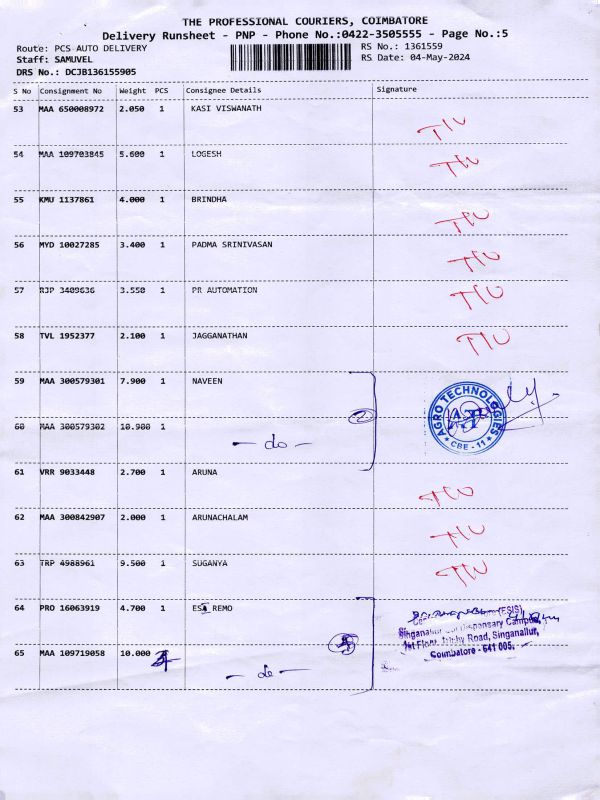 THE PROFESSIONAL COURIERS, COIMBATORE
Delivery Runsheet - PNP - Phone No.:0422-3505555 - Page No.:5
Route: PCS AUTO DELIVERY RS No.: 1361559
Staff: SAMUVEL RS Date: 04-May-2024
DRS No.: DCJB136155905
S No Consignment No Weight PCS Consignee Details Signature
53 MAA 650008972 2.050 1 KASI VISWANATH
54 MAA 109703845 5.600 1 LOGESH
55 KMU 1137861 4.000 1 BRINDHA
56 MYD 10027285 3.400 1 PADMA SRINIVASAN
57 RJP 3409636 3.550 1 PR AUTOMATION
58 TVL 1952377 2.100 1 JAGGANATHAN
59 MAA 300579301 7.900 1 NAVEEN
AGRO TECHNOLOGIES
CBE - 11
60 MAA 300579302 10.900 1
- do -
61 VRR 9033448 2.700 1 ARUNA
62 MAA 300842907 2.000 1 ARUNACHALAM
63 TRP 4988961 9.500 1 SUGANYA
64 PRO 16063919 4.700 1 ESI REMO
(ESIS)
Singanallur Dispensary Campus,
1st Floor, Trichy Road, Singanallur,
Coimbatore - 641 005.
65 MAA 109719058 10.000
- do -